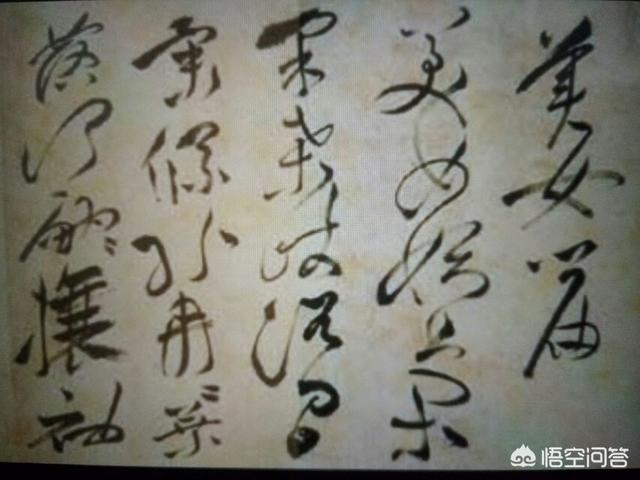 美女篇
美女妖且閑
采桑歧路間
柔條紛冉冉葉
落何翩翩攘袖
悟空问答